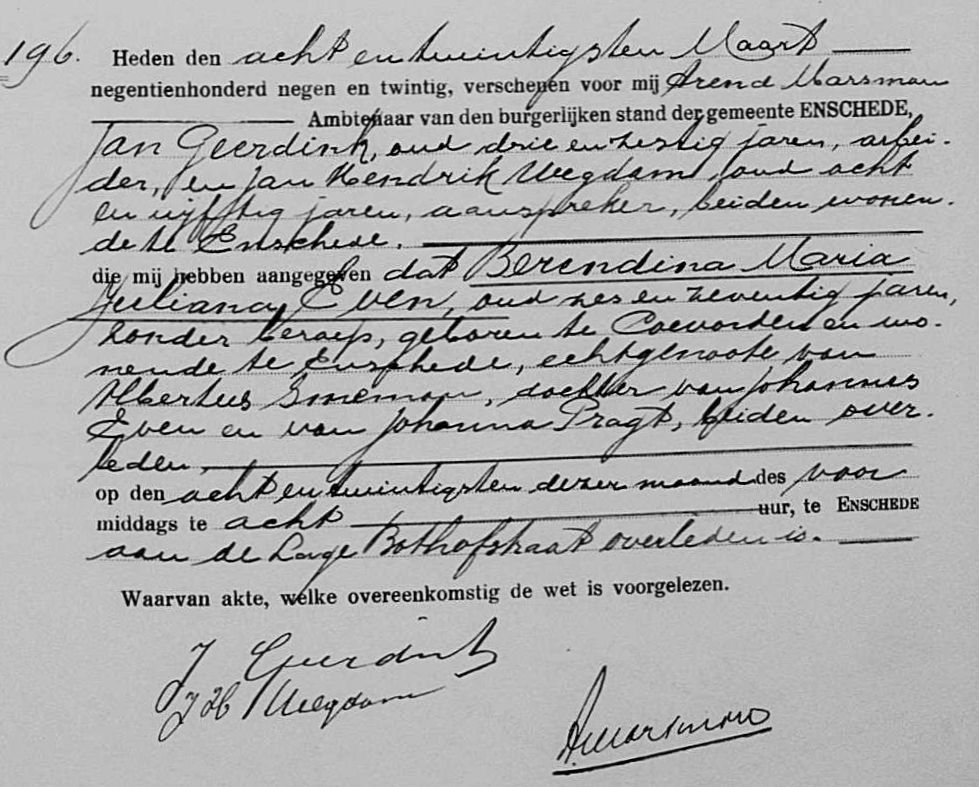 196. Heden den acht en twintigsten Maart
negentienhonderd negen en twintig, verschenen voor mij Arend Marsman
Ambtenaar van den burgerlijken stand der gemeente ENSCHEDE,
Jan Geerdink, oud drie en zestig jaren, arbei-
der, en Jan Hendrik Weegdam, oud acht
en vijftig jaren, aanspreker, beiden wonen-
de te Enschede.
die mij hebben aangegeven dat Berendina Maria
Juliana Even, oud zes en zeventig jaren,
zonder beroep, geboren te Coevorden en wo-
nende te Enschede, echtgenoote van
Albertus Smeman, dochter van Johannes
Even en van Johanna Pragt, beiden over-
leden,
op den acht en twintigsten dezer maand des voor
middags te acht uur, te ENSCHEDE
aan de Lage Bothofstraat overleden is.
Waarvan akte, welke overeenkomstig de wet is voorgelezen.
J Geerdink
J H Weegdam
A Marsman